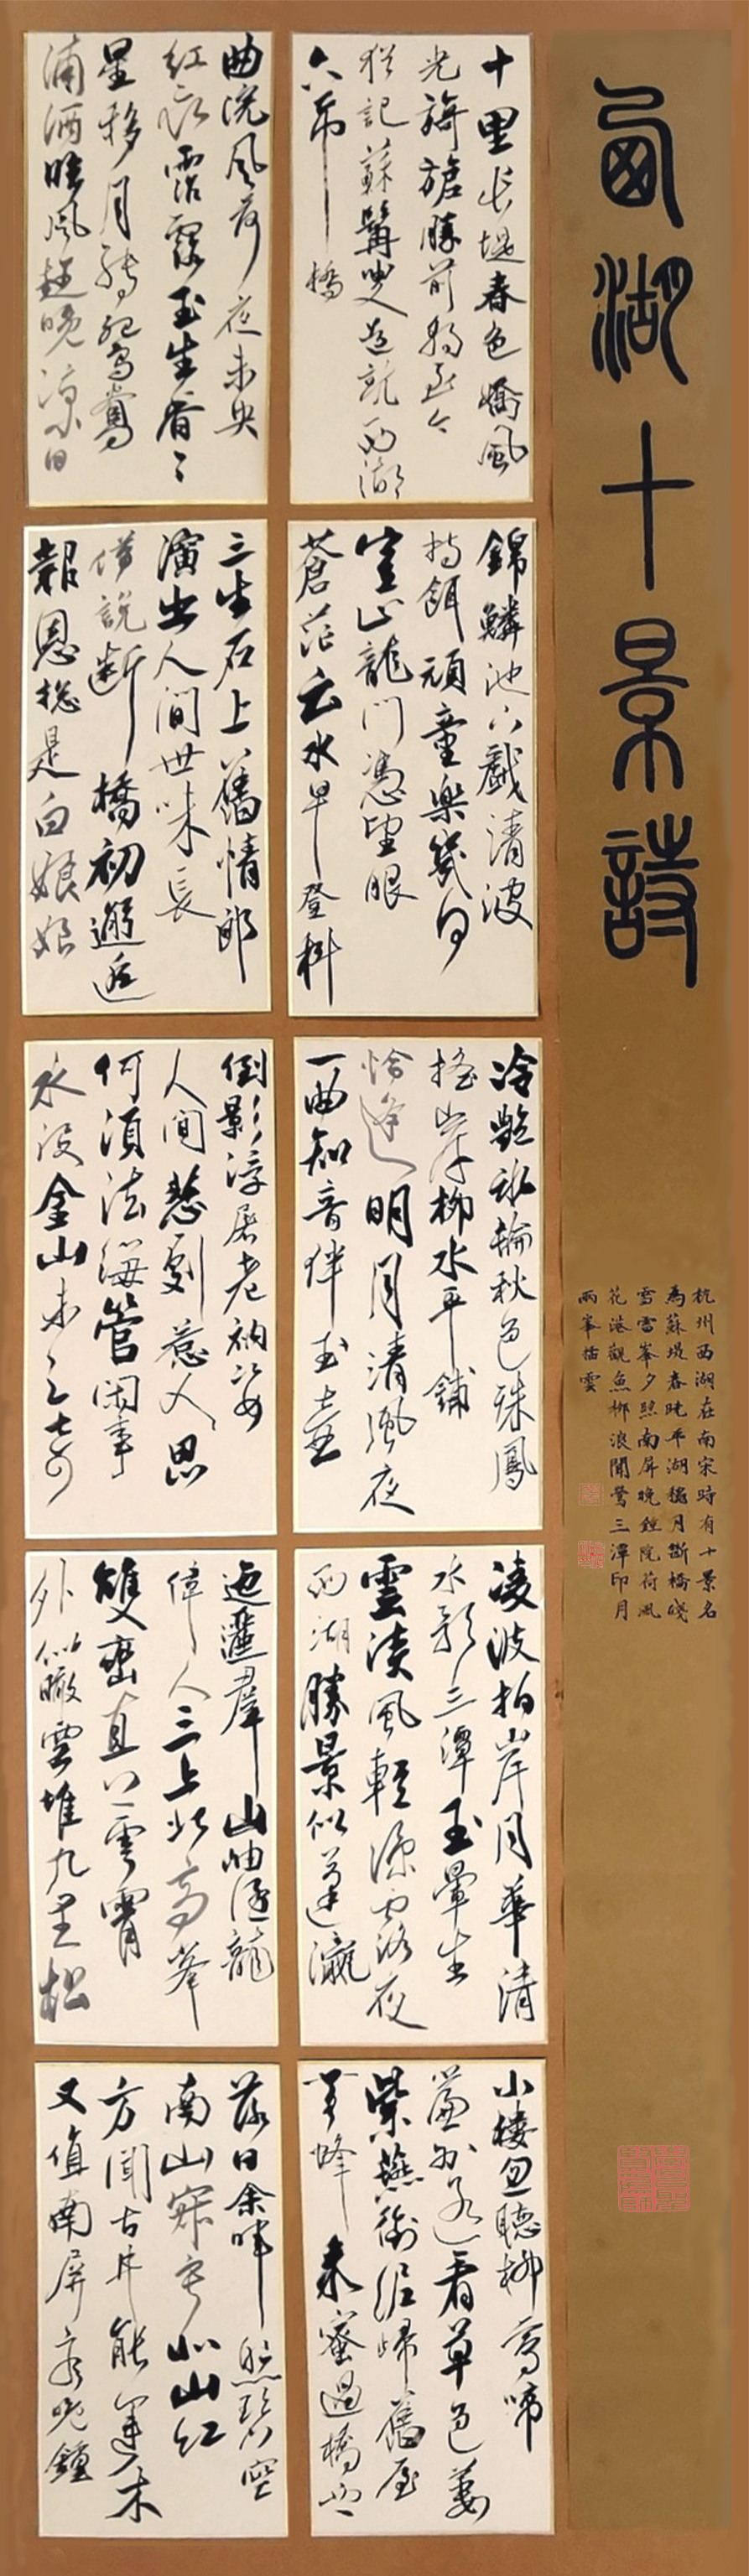 西湖十景詩
杭州西湖在南宋時有十景名
為蘇堤春曉平湖穐月斷橋殘
雪雷峯夕照南屏晚鐘院荷風
花港觀魚柳浪聞鶯三潭印月
兩峯插雲
十里長堤春色嬌風
光旖旎勝前朝至今
猶記蘇髯叟
西湖
六吊橋
錦鱗池下戲清波
持餌頑童樂幾何
龍門憑望眼
蒼茫雲水早登科
冷艷冰輪秋色殊鳳
搖岸柳水平鋪
恰逢明月清風夜
一曲知音伴玉壺
凌波拍岸月華清
水影三潭玉暈生
雲淡風輕涼夜
西湖勝景似蓬瀛
小樓忽聽柳鶯啼
簾外遙看草色萋
紫燕銜泥歸舊屋
羣蜂采蜜過橋西
曲院風荷夜未央
紅衣露靄玉生香
星移月轉鴛鴦
浦酒晚涼
三生石上舊情郎
演出人間世味長
借說斷橋初邂逅
報恩總是白娘娘
倒影浮屠老衲姿
人間悲劇惹人思
何須法海管閑事
水沒金山未足奇
迤邐群山岫隱龍
偉人三上北高峯
雙巒直上雲霄
外似瞰雲堆九里松
落日余暉照碧空
南山寂寂北山紅
方聞古寺能蓮木
又值南屏夜晚鐘